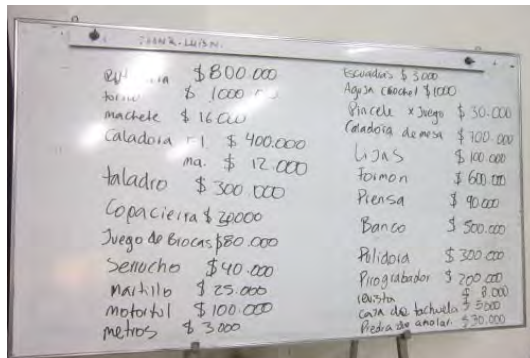 $800.000
$ 1000
machete $ 16.000
Caladora $ 400.000
ma. $ 12.000
taladro $ 300.000
Copacierra $ 20000
Juego de Brocas $80.000
Serrucho $40.000
Martillo $ 25.000
mototul $ 100.000
metros $ 3000
Escuadras $ 3000
Aguja crochet $1000
Pincele x Juego $ 30.000
Caladora de mesa $ 700.000
LiJAS $ 100.000
Formon $ 600.000
Prensa $ 90.000
Banco $ 500.000
Pulidora $ 300.000
Pirograbador $ 200.000
revista $ 8.000
caja de tachuela $ 3000
Piedra de amolar. $30.000